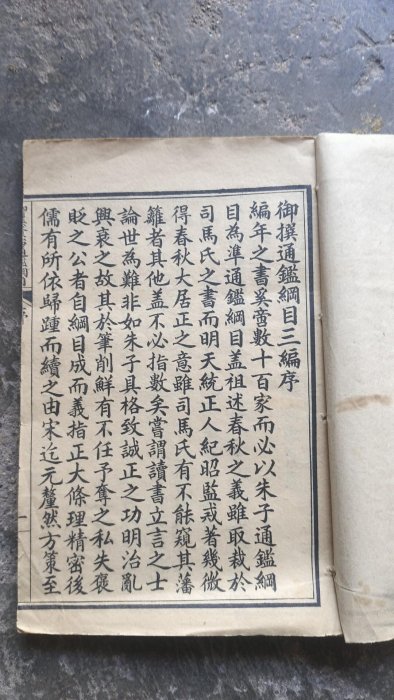 御撰通鑑綱目三編序
編年之書奚啻數十百家而必以朱子通鑑綱
目為準通鑑綱目蓋祖述春秋之義雖取裁於
司馬氏之書而明天統正人紀昭監戒著幾微
得春秋大居正之意雖司馬氏有不能窺其藩
籬者其他蓋不必指數矣嘗謂讀書立言之士
論世為難非如朱子具格致誠正之功明治亂
興衰之故其於筆削鮮有不任予奪之私失褒
貶之公者自綱目成而義指正大條理精密後
儒有所依歸踵而續之由宋迄元釐然方策至